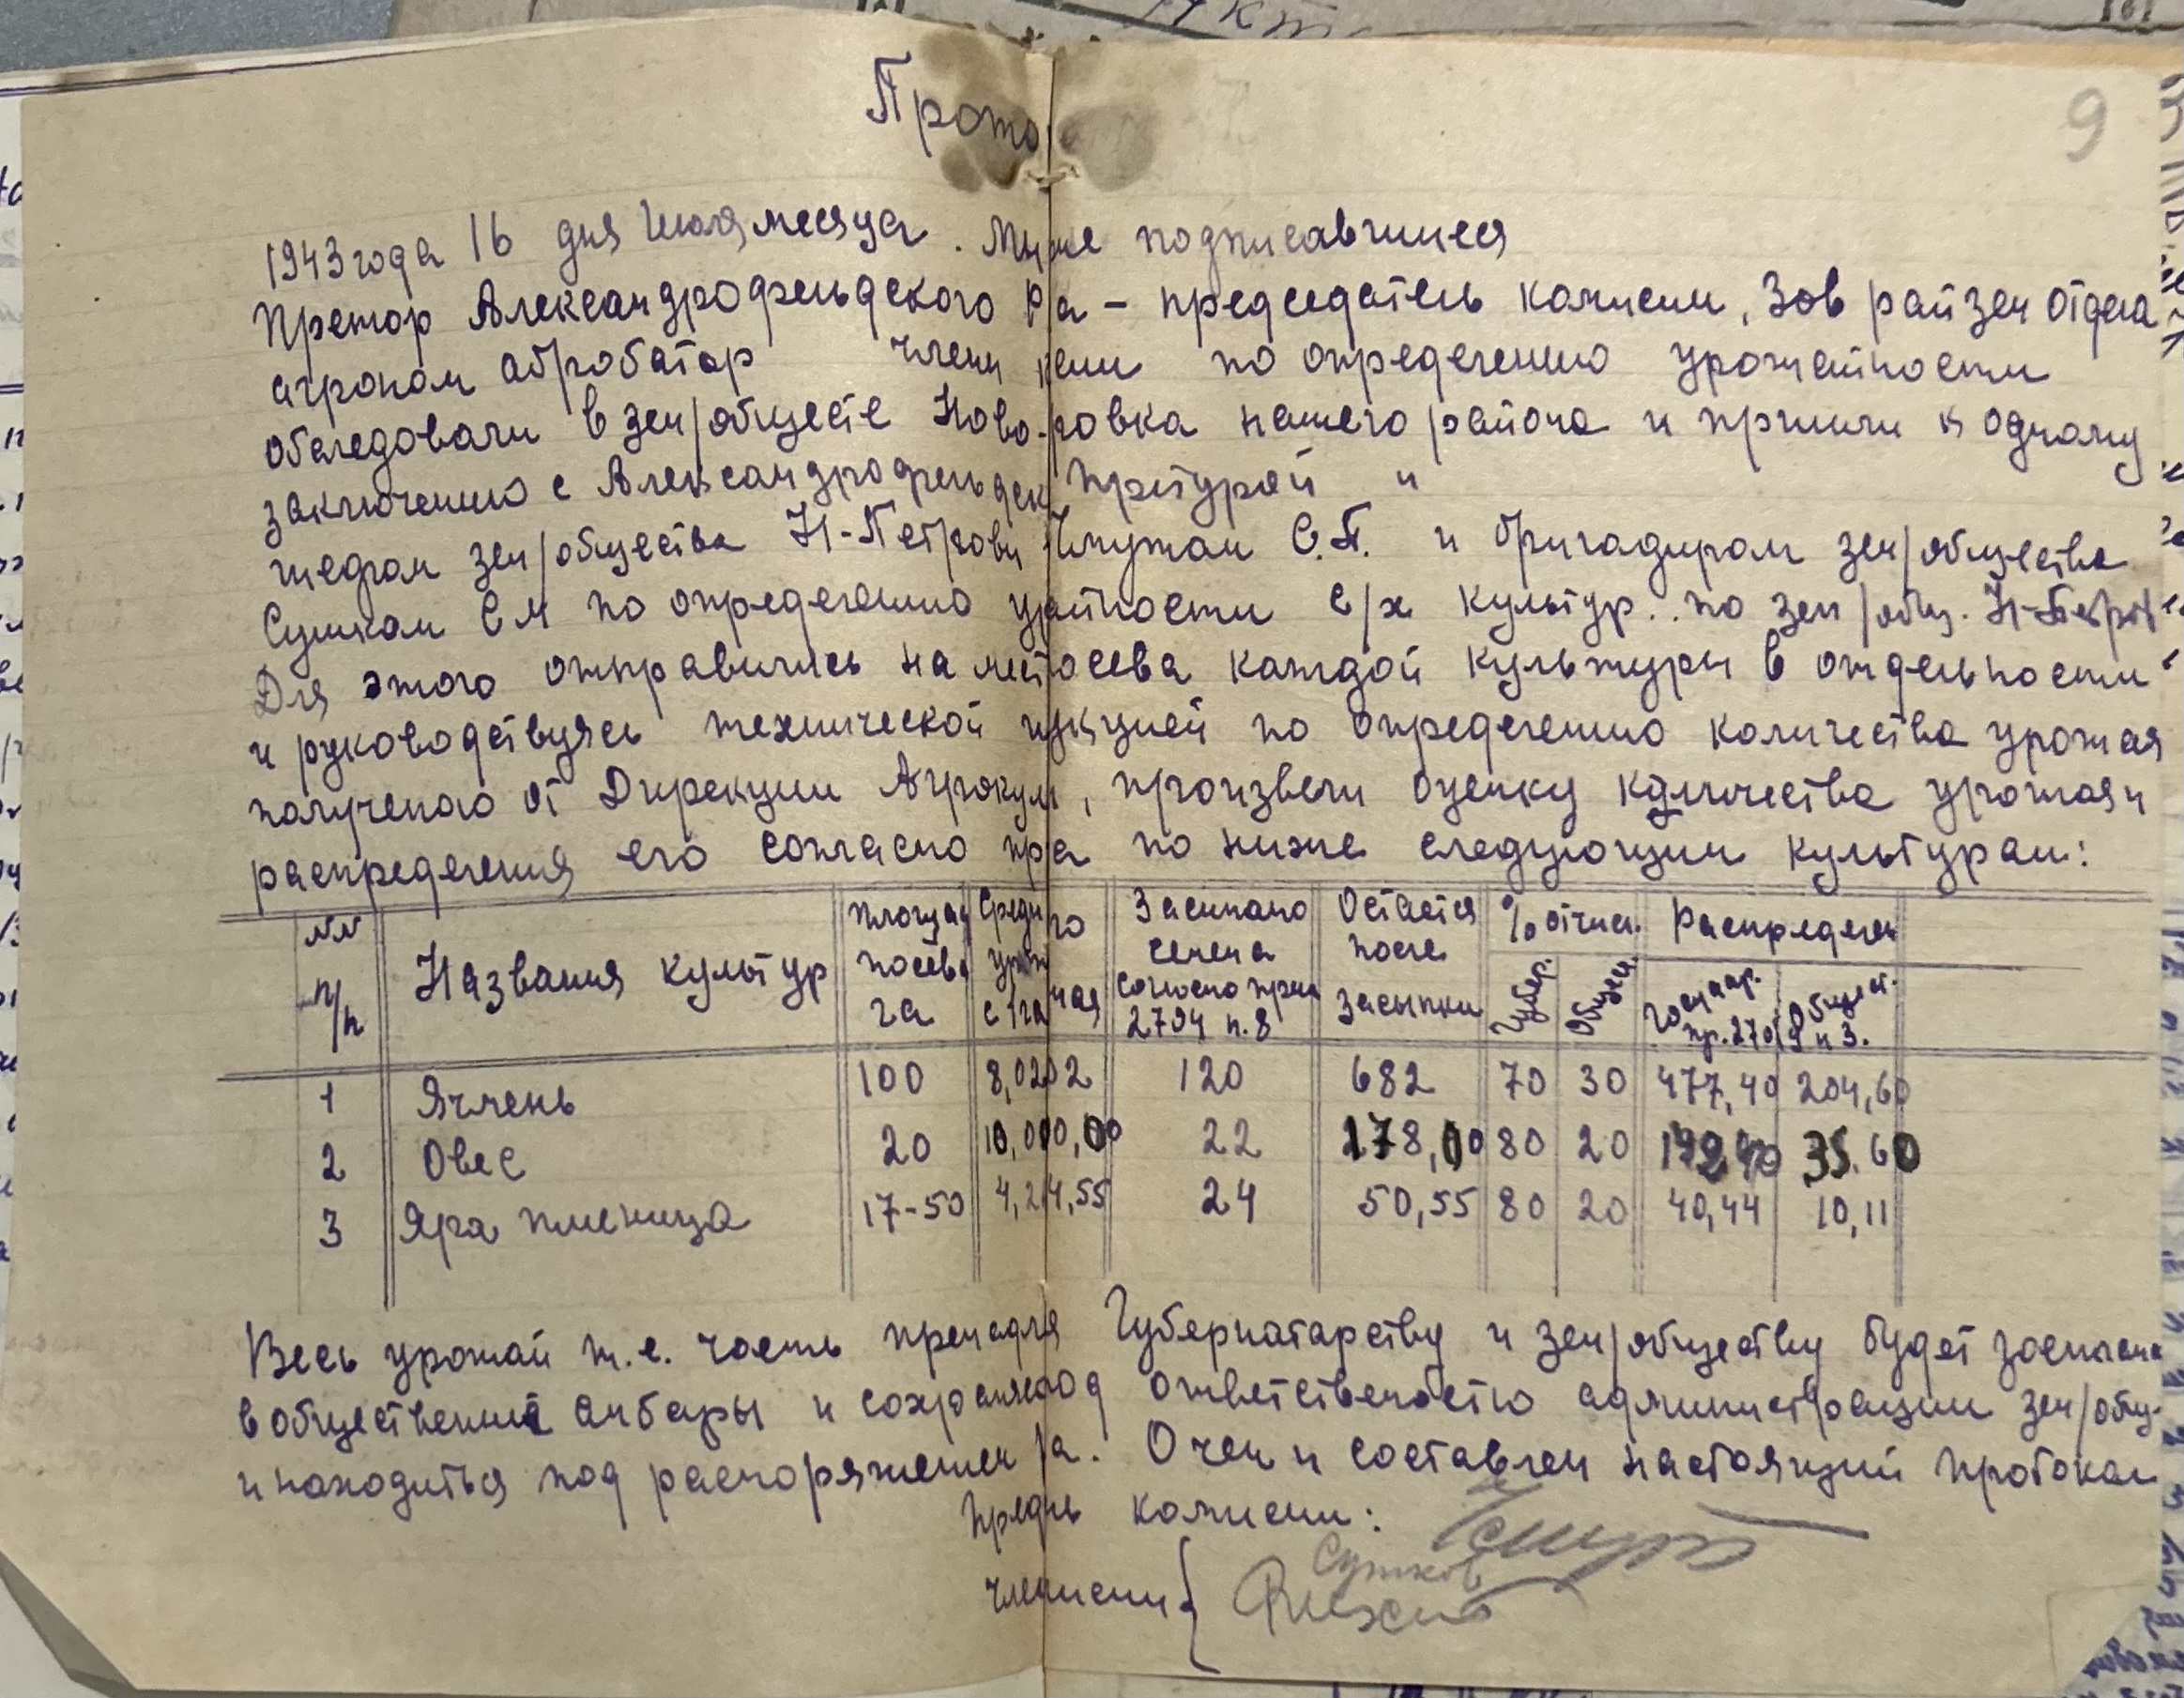 Прото
9
1943 года 16 дня Июля месяца. Мы же подписавшиеся
Претор Александрофельдского Р а – председатель комисии, Зов райземотдела
агроном абробатар члены исии по определению урожайности
обследовали в зем/обществе Ново- ровка нашего района и пришли к одному
заключению с Александрофельдск Претурой и
шедром зем/общества Н-Петровк С.П. и бригадиром зем/общества
Сушком С М по определению ур йности с/х культур.. по зем/общ. Н-Петров
Для этого отправились на мест осева каждой культуры в отдельности
и руководствуясь технической укцией по определению количества урожая
полученого от Дирекции Агрокул, произвели оценку количества урожая и
распределения его согласно пр а по ниже следующим культурам:
NN п/п Названия культур площад посева га средн ур с 1 га го чая Засыпано семена согласно прик 2794 п.8 Остаётся после засыпки % отчис. Губер. Общест. Распределен Государ. пр. 270 Общест. 9 п 3.
1 Ячмень 100 8,02 02 120 682 70 30 477,40 204,60
2 Овес 20 10,0 00,00 22 178,00 80 20 142,40 35.60
3 Яра пшеница 17-50 4,2 4,55 24 50,55 80 20 40,44 10,11
Весь урожай т.е. часть пренадля Губернатарству и зем/обществу будет засыпана
в общественние анбары и сохраняе од ответственостю администрации зем/общ.
и находиться под распоряжением а. О чем и составлен настоящий протокол
Предс ь комисии:
Сушков
член исии